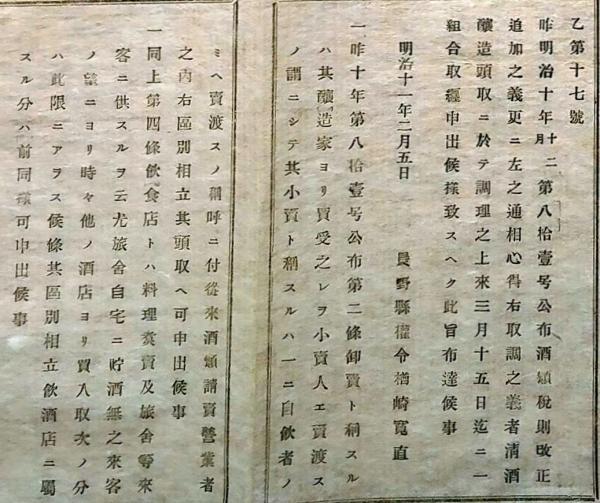 乙第十七號
昨明治十年十二月第八拾壹号公布酒類税則改正
追加之義更ニ左之通相心得右取調之義者清酒
釀造頭取ニ於テ調理之上來三月十五日迄ニ一
組合取纒申出候樣致スヘク此旨布達候事
明治十一年二月五日
長野縣權令楢崎寬直
一昨十年第八拾壹号公布第二條卸賣ト稱スル
ハ其釀造家ヨリ買受之レヲ小賣人エ賣渡ス
ノ謂ニシテ其小賣ト稱スルハ一ニ自飲者ノ
ミヘ賣渡スノ稱呼ニ付從來酒類請賣營業者
之內右區別相立其頭取ヘ可申出候事
一同上第四條飲食店トハ料理煑賣及旅舍等來
客ニ供スルヲ云尤旅舍自宅ニ貯酒無之來客
ノ望ニヨリ時々他ノ酒店ヨリ買入取次ノ分
ハ此限ニアラス候條其區別相立飲酒店ニ屬
スル分ハ前同樣可申出候事